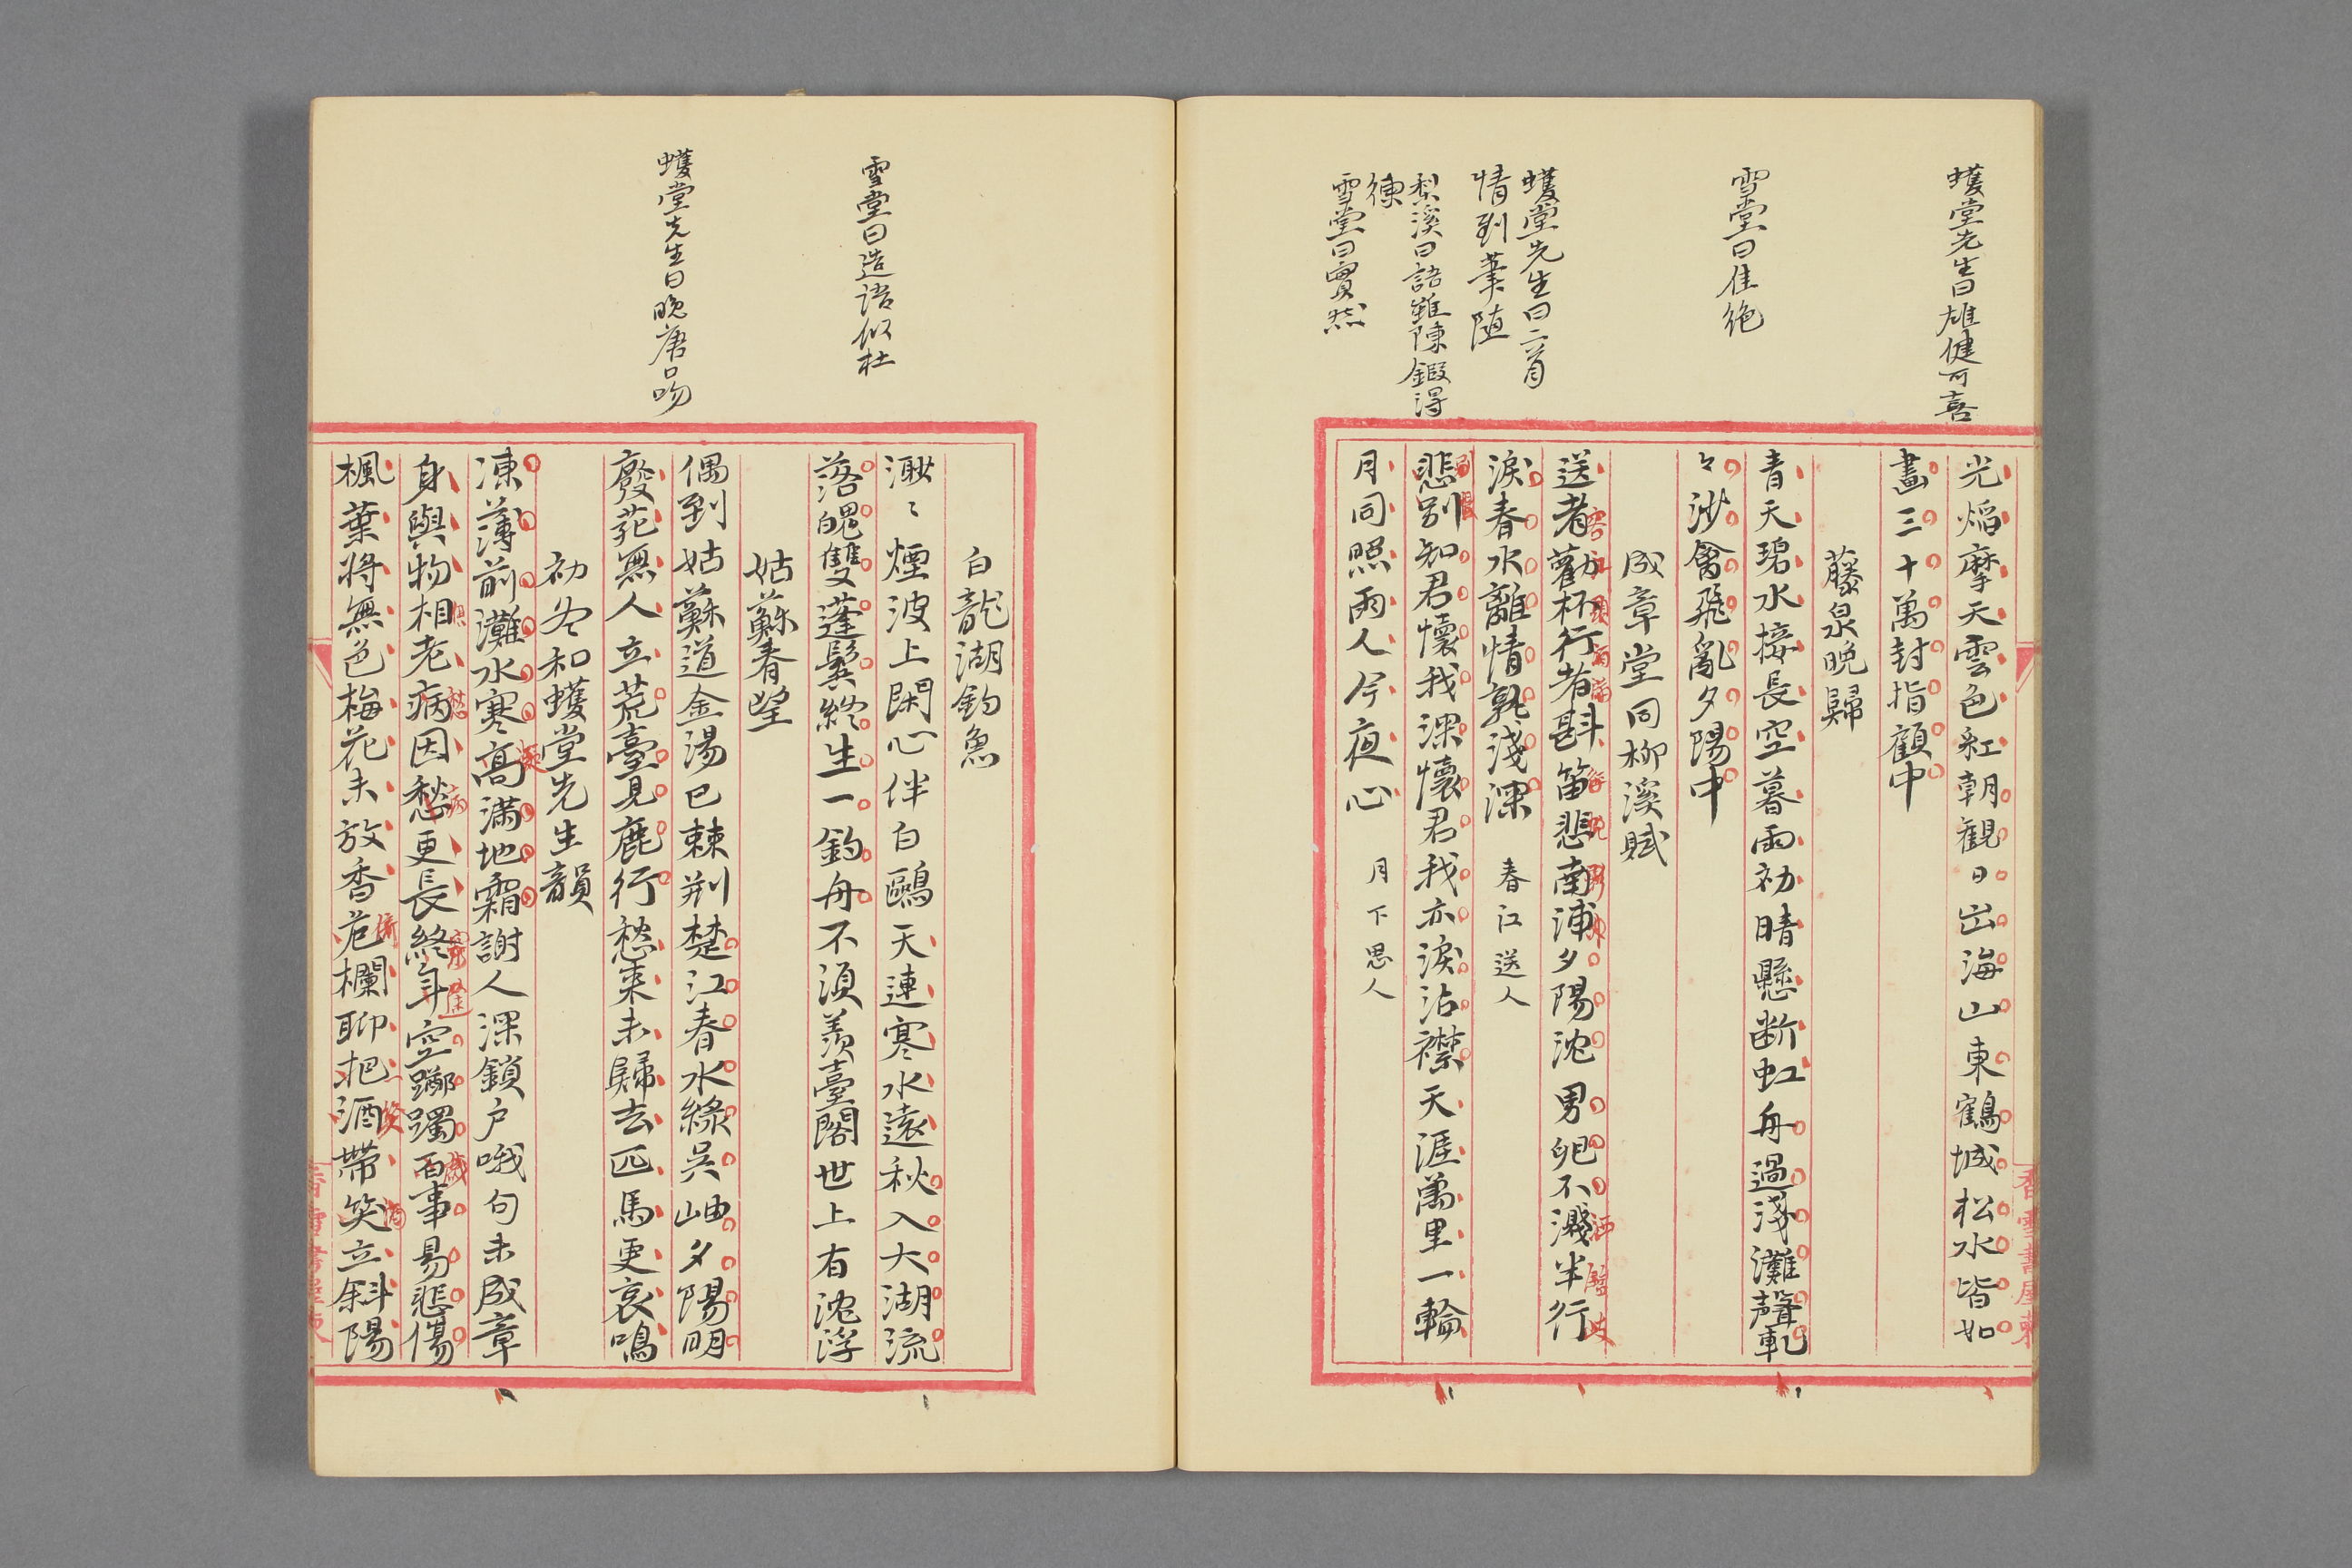 蠖堂先生曰雄健可喜
雪堂曰佳絶
蠖堂先生曰二首
情到筆随
梨溪曰語雖陳鍜得
練
雪堂曰實然
光焔摩天雲色紅朝觀日出海山東鶴城松水皆如
畫三十萬封指顧中
藤泉晩歸
青天碧水接長空暮雨初晴懸断虹舟過淺灘聲軋
々沙禽飛亂夕陽中
成章堂同柳溪賦
送者勸杯行者斟笛悲南浦夕陽沈男兒不濺半行
淚春水離情孰淺深 春江送人
悲別知君懷我深懷君我亦淚沾襟天涯萬里一輪
月同照兩人今夜心 月下思人
香雪書屋
雪堂曰造語似杜
蠖堂先生曰晩唐口吻
白龍湖釣魚
渺〻煙波上閑心伴白鷗天連寒水遠秋入大湖流
落魄雙蓬鬂終生一釣舟不須羨臺閣世上有沈浮
姑蘇春望
偶到姑蘇道金湯已棘荆楚江春水綠吳岫夕陽明
廢苑無人立荒臺見鹿行愁来未歸去匹馬更哀鳴
初冬和蠖堂先生韻
凍薄前灘水寒高滿地霜謝人深鎖户哦句未成章
凝
身與物相老病因愁更長終年空躑躅百事易悲傷
楓葉將無色梅花未放香危欄聊把酒帶笑立斜陽